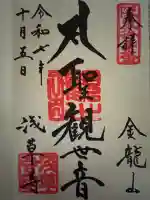 奉拝
金龍山
聖観世音
浅草寺
令和七年
十月五日